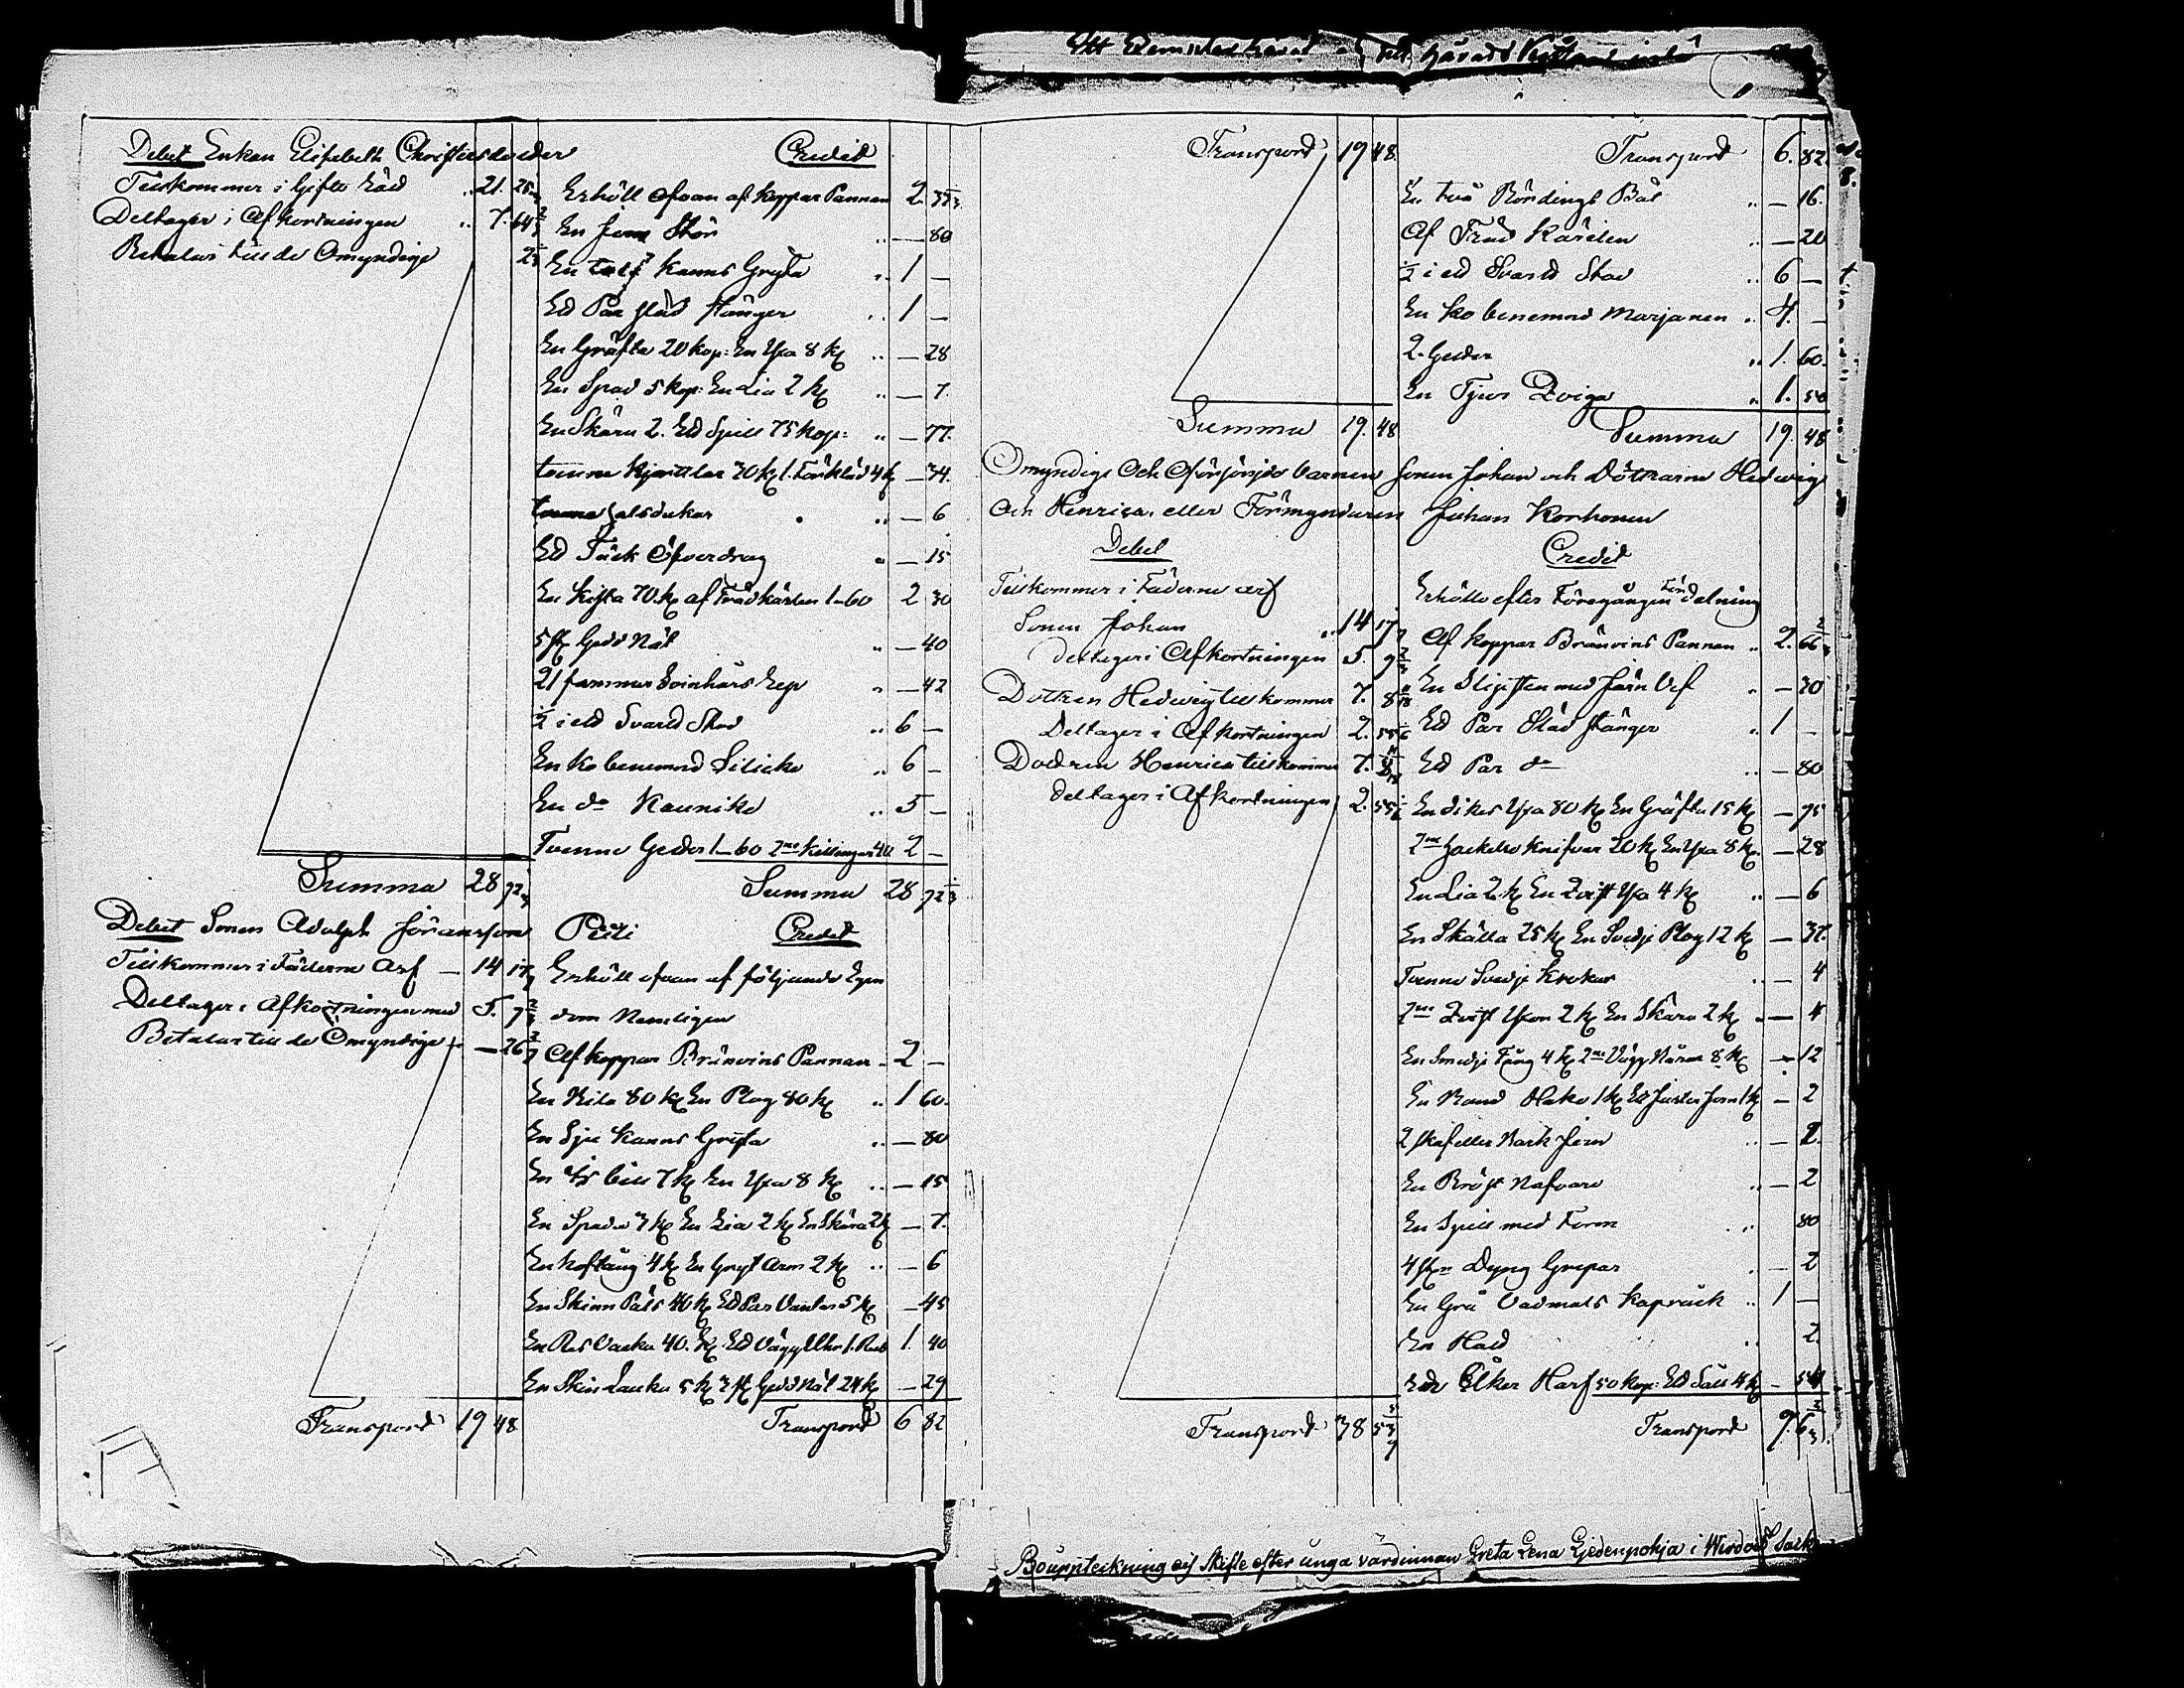 Debet Enkan Elisabeth Christersdotter Credit
Tillkommer i Gifto Rätt 21. 25
Deltager i Afkortningen 7. 64 2/3
Betalar till de Omyndige 2 2/3
Erhöll af Koppar Pannan 2. 33 1/3
En Stör — 80
En Kanns Gryta 1 —
Ett Par Släd Stänger 1 —
En Gräfta 20 Kop: En Yxa 8 K — 28
En Spad 5 Kop: En Lia 2 K — 7.
En Skära 2. Ett Spill 75 Kop: — 77.
tvenne Kjortlar 30 K 1. Förkläd 4 K — 34.
halsdukar — 6
Ett Täck Öfverdrag — 15
En Kista 70. K af Trädkärlen 1-60 2 30
5 st Gädd Nät — 40
21 famnar Svinhårs Rep — 42
1/2 i ett Svart Sto 6 —
En Ko benemnd Lilicko 6 —
En do Kauniko 5 —
Tvenne Getter 1-60 2ne Killingar 40 2 —
Summa 28 92 1/3 Summa 28 92 1/3
Debet Sonen Adolph Göransson Credit
Tillkommer i Fäderne Arf — 14 17
Deltager i Afkortningen med 5. 9 2/3
Betalar till de Omyndige — 26
Erhöll af följande Egen
dom Nemligen
Af Koppar Bränvins Pannan 2 —
En Kila 80 K En Plog 80 K 1 60.
En Sju Kanns Gryta — 80
En Is bill 7 K En Yxa 8 K — 15
En Spada 3 K En Lia 2 K En Skära 2 K — 7.
En Hoftång 4 K En Gryt Arm 2 K — 6
En Skinn Päls 40 K Ett Par Vantar 5 K — 45
En Res Vaska 40. K Ett Vägg Uhr 1. Rub 1. 40
En Skin 5 K 3 st Gädd Nät 24 K — 29
Transport 19 48 Transport 6 82
Transport 19 48. Transport 6. 82.
En två Bördings Båt — 16.
Af Träd Kärlen — 20
1/2 i ett Svart Sto 6 —
En Ko benemnd Marjanen 4. —
2. Getter 1. 60.
En Tjur Qviga 1. 50
Summa 19. 48 Summa 19. 48
Omyndige Och barnen Sonen Johan och Döttrarne Hedwig
Och Henrica. eller Förmyndaren Johan Korhonen
Debet Credit
Tillkommer i Fäderne arf
Sonen Johan 14 17
deltager i Afkortningen 5. 9 2/3
Dottren Hedwig tillkommer 7. 8
Deltager i Afkortningen 2. 55
Dottren Henrica tillkommer 7. 8
deltager i Afkortningen 2. 55
Erhölle efter Föregången Fördelning
Af Koppar Bränvins Pannan 2. 66 2/3
En Slipsten med Järn Vef — 30
Ett Par Släd Stänger 1 —
Ett Par do — 80
En dikes Yxa 80 K En Gräfta 15 K — 95
2ne Hackelse Knifvar 20 K En Yxa 8 K. — 28
En Lia 2 K En Qvist Yxa 4 K — 6
En Skälla 25 K En Svedje Plog 12 K — 37.
Tvenne Svedje Krokar — 4
2ne Qvist Yxor 2 K En Skära 2 K — 4
En Smedje Tång 4 K 2ne Vägg Nafrar 8 K — 12
En Band Hake 1 K Ett Juster Jern 1 K — 2
2 skaf eller Bark Jern — 2.
En Bröst Nafvare — 2
En Spill med Form 80
4 st Dyng Grepar — 2
En Grå Vadmals Kaprock 1 —
En Hatt 2.
Ett Åker Harf 50 Kop: Ett Såll 4 K — 54
Transport 38 53 Transport 9. 6 2/3.
Bouppteckning och Skifte efter unga värdinnan Greta Lena Ljedenpohja i Wirdois Sock